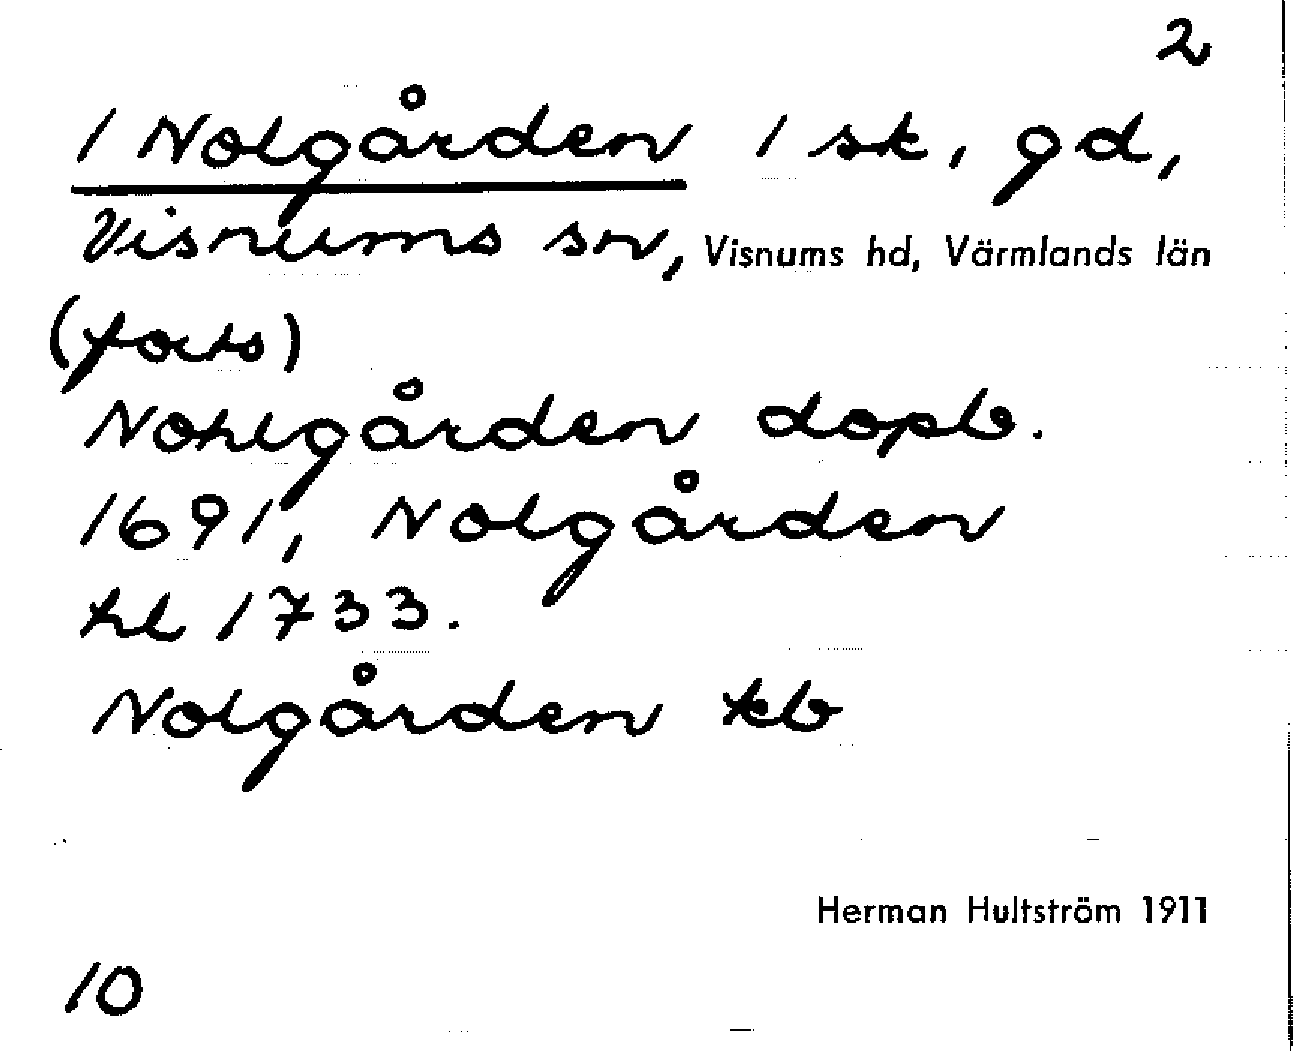 2
1 Nolgården 1 sk, gd,
Visnums sn, Visnums hd, Värmlands län
(forts)
Nohlgården dopb.
1691, Nolgården
hl 1733.
Nolgården kb
Herman Hultström 1911
10